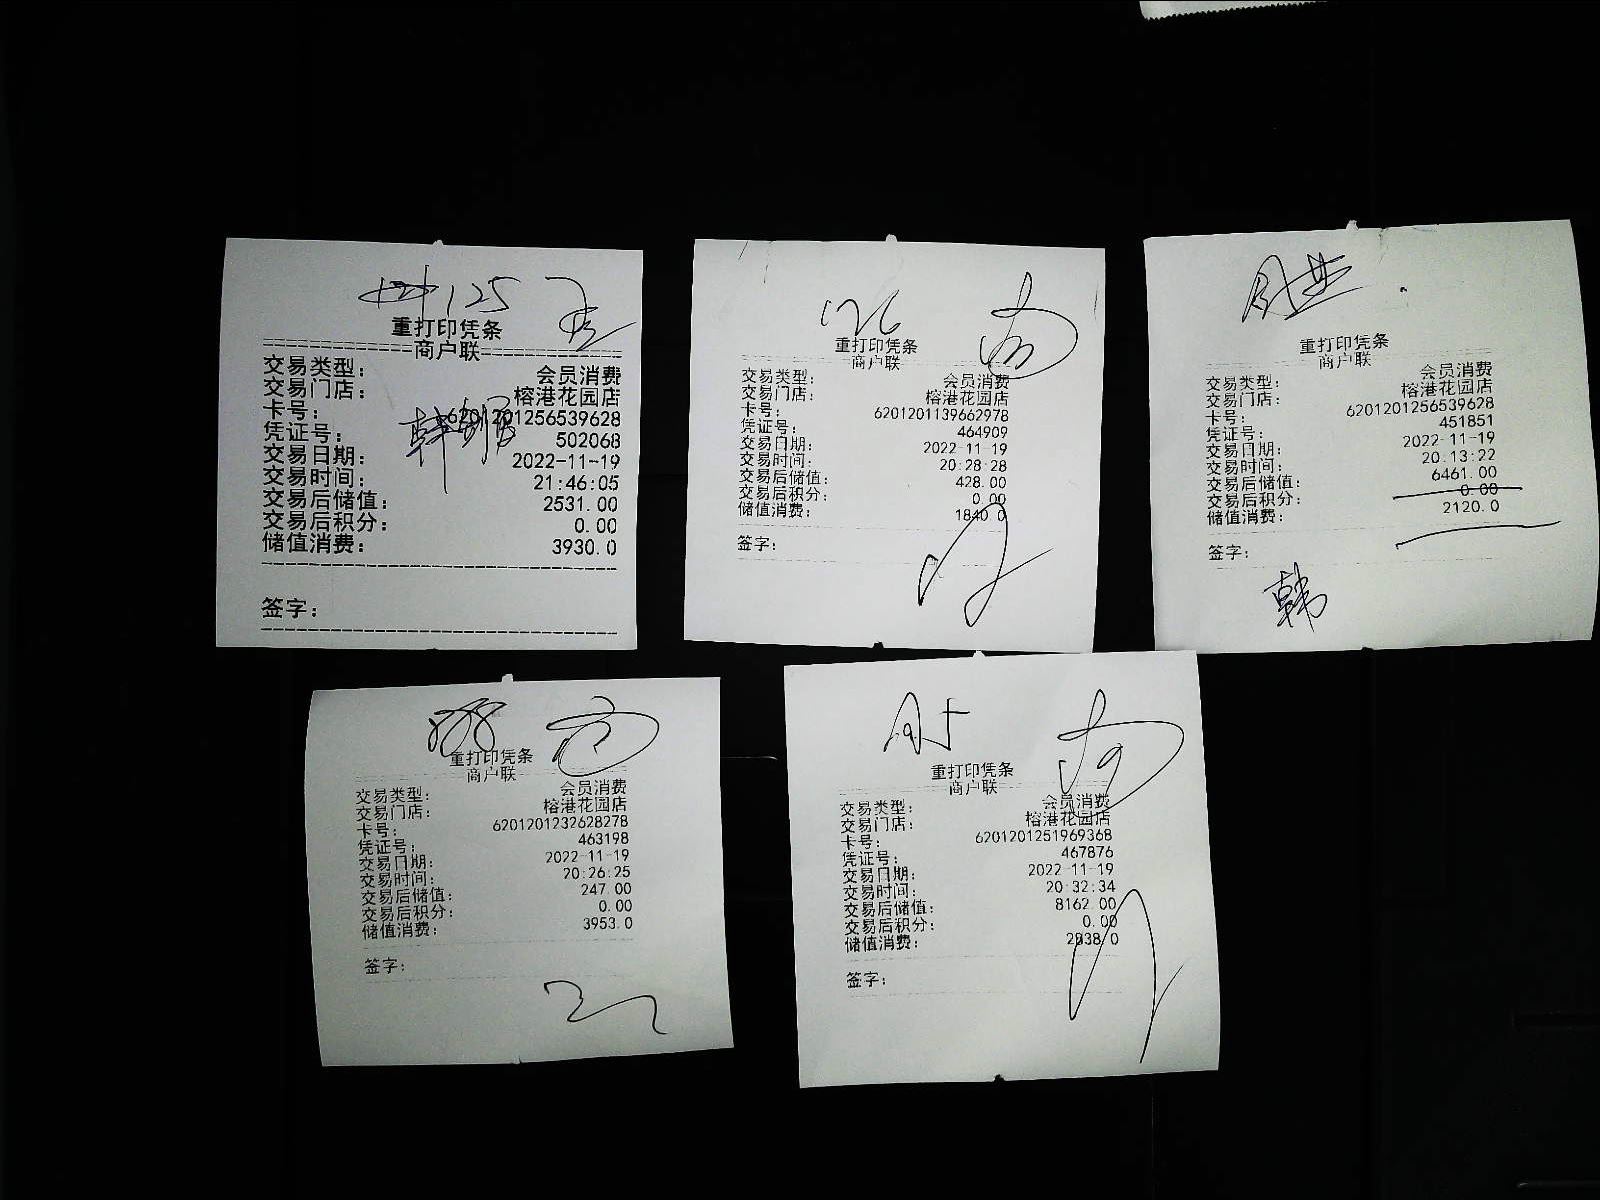 125
重打印凭条
商户联
交易类型： 会员消费
交易门店： 榕港花园店
卡号： 6201201256539628
凭证号： 502068
交易日期： 2022-11-19
交易时间： 21:46:05
交易后储值： 2531.00
交易后积分： 0.00
储值消费： 3930.0
签字：
126
重打印凭条
商户联
交易类型： 会员消费
交易门店： 榕港花园店
卡号： 6201201139662978
凭证号： 464909
交易日期： 2022-11-19
交易时间： 20:28:28
交易后储值： 428.00
交易后积分： 0.00
储值消费： 1840.0
签字：
重打印凭条
商户联
交易类型： 会员消费
交易门店： 榕港花园店
卡号： 6201201256539628
凭证号： 451851
交易日期： 2022-11-19
交易时间： 20:13:22
交易后储值： 6461.00
交易后积分： 0.00
储值消费： 2120.0
签字：
韩
重打印凭条
商户联
交易类型： 会员消费
交易门店： 榕港花园店
卡号： 6201201232628278
凭证号： 463198
交易日期： 2022-11-19
交易时间： 20:26:25
交易后储值： 247.00
交易后积分： 0.00
储值消费： 3953.0
签字：
重打印凭条
商户联
交易类型： 会员消费
交易门店： 榕港花园店
卡号： 6201201251969368
凭证号： 467876
交易日期： 2022-11-19
交易时间： 20:32:34
交易后储值： 8162.00
交易后积分： 0.00
储值消费： 2938.0
签字：